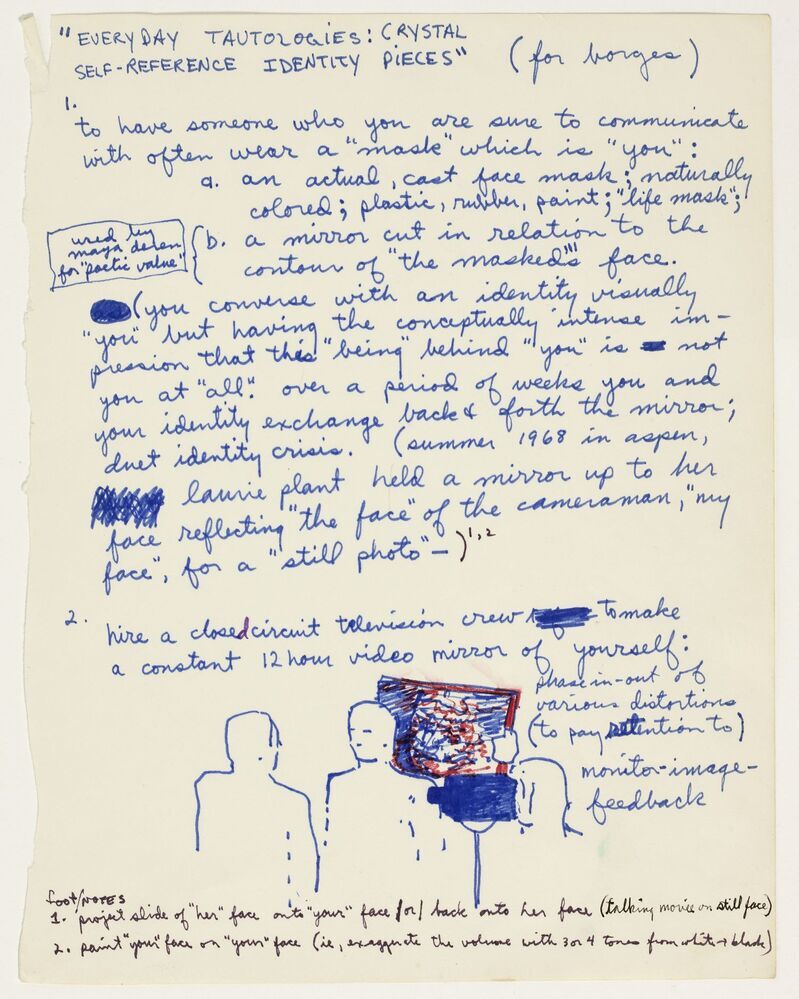 "EVERYDAY TAUTOLOGIES: CRYSTAL
SELF-REFERENCE IDENTITY PIECES" (for borges)
1.
to have someone who you are sure to communicate
with often wear a "mask" which is "you":
a. an actual, cast face mask; naturally
colored; plastic, rubber, paint; "life mask";
used by
maya deren
for "poetic value"
b. a mirror cut in relation to the
contour of "the masked's" face.
(you converse with an identity visually
"you" but having the conceptually intense im-
pression that this "being" behind "you" is not
you at "all". over a period of weeks you and
your identity exchange back & forth the mirror;
duet identity crisis. (summer 1968 in aspen,
laurie plant held a mirror up to her
face reflecting "the face" of the cameraman, "my
face", for a "still photo" – )1,2
2. hire a closed circuit television crew to make
a constant 12 hour video mirror of yourself:
phase in-out of
various distortions
(to pay attention to)
monitor-image-
feedback
foot/NOTES
1. project slide of "her" face onto "your" face /or/ back onto her face (talking movie on still face)
2. paint "your" face on "your" face (ie, exaggerate the volume with 3 or 4 tones from white → black)